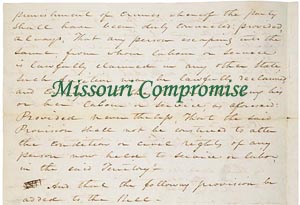 punishment of crimes, whereof the party
shall have been duly convicted: provided,
always, That any person escaping into the
same, from whom labour or service
is lawfully claimed in any other State
such
Missouri Compromise
or her labour or service, as aforesaid:
Provided nevertheless, That the said
Provision shall not be construed to alter
the condition or civil rights of any
person now held to service or labor
in the said Territory.
And that the following provision be
added to the Bill